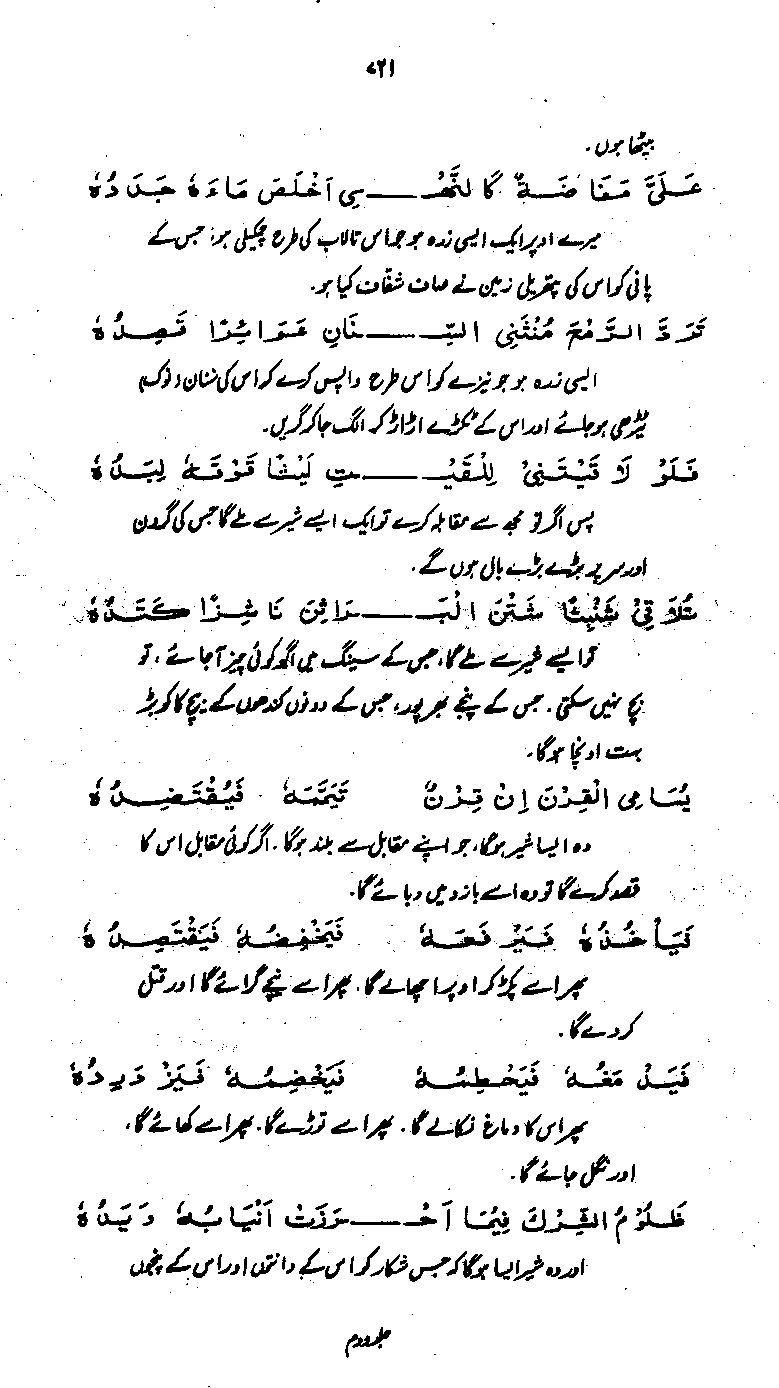 ۷۲۱
بیٹھا ہوں۔
عَلَيَّ مَفَاضَةٌ كَالنَّهْــــيِ اَخْلَصَ مَاءَهُ جَدَدُهُ
میرے اوپر ایک ایسی زرہ ہو جو اس تالاب کی طرح چمکیلی ہو، جس کے
پانی کو اس کی پتھریلی زمین نے صاف شفاف کیا ہو۔
تَرُدَّ الرُّمْحَ مُنْثَنِى السِّــــنَانِ عَوَائِرًا قَصِدُهُ
ایسی زرہ ہو جو نیزے کو اس طرح واپس کرے کہ اس کی سنان (نوک)
ٹیڑھی ہو جائے اور اس کے ٹکڑے اڑ اڑ کر الگ جا کر گریں۔
فَلَوْ لَاقَيْتَنِىْ لَلَقَيْــــتَ لَيْثًا فَوْقَهُ لِبَدُهُ
پس اگر تو مجھ سے مقابلہ کرے تو ایک ایسے شیر سے ملے گا جس کی گردن
اور سر پر بڑے بڑے بال ہوں گے۔
تُلَاقِىْ شَنْبَثًا شَثْنَ الْبَــــرَاثِنِ نَاشِزًا كَتَدُهُ
تو ایسے شیر سے ملے گا، جس کے سینگ میں اگر کوئی چیز آ جائے، تو
بچ نہیں سکتی۔ جس کے پنجے بھرپور، جس کے دونوں کندھوں کے بیچ کا کوبڑ
بہت اونچا ہو گا۔
يُسَامِى الْقِرْنَ اِنْ قِرْنٌ تَيَمَّمَهُ فَيَعْتَضِدُهُ
وہ ایسا شیر ہو گا، جو اپنے مقابل سے بلند ہو گا۔ اگر کوئی مقابل اس کا
قصد کرے گا تو وہ اسے بازو میں دبائے گا۔
فَيَأْخُذُهُ فَيَرْفَعُهُ فَيَخْفِضُهُ فَيَقْتَصِدُهُ
پھر اسے پکڑ کر اوپر اچھالے گا۔ پھر اسے نیچے گرائے گا اور قتل
کر دے گا۔
فَيَدْمَغُهُ فَيَحْطِمُهُ فَيَخْضِمُهُ فَيَزْدَرِدُهُ
پھر اس کا دماغ نکالے گا۔ پھر اسے توڑے گا۔ پھر اسے کھائے گا۔
اور نگل جائے گا۔
ظَلُوْمُ الشِّرْكِ فِيْمَا اَحْــــرَزَتْ اَنْيَابُهُ وَيَدُهُ
اور وہ شیر ایسا ہو گا کہ جس شکار کو اس کے دانتوں اور اس کے پنجوں
جلد دوم